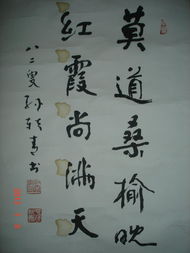 莫道桑榆晚
红霞尚满天
八二叟孙轶青书